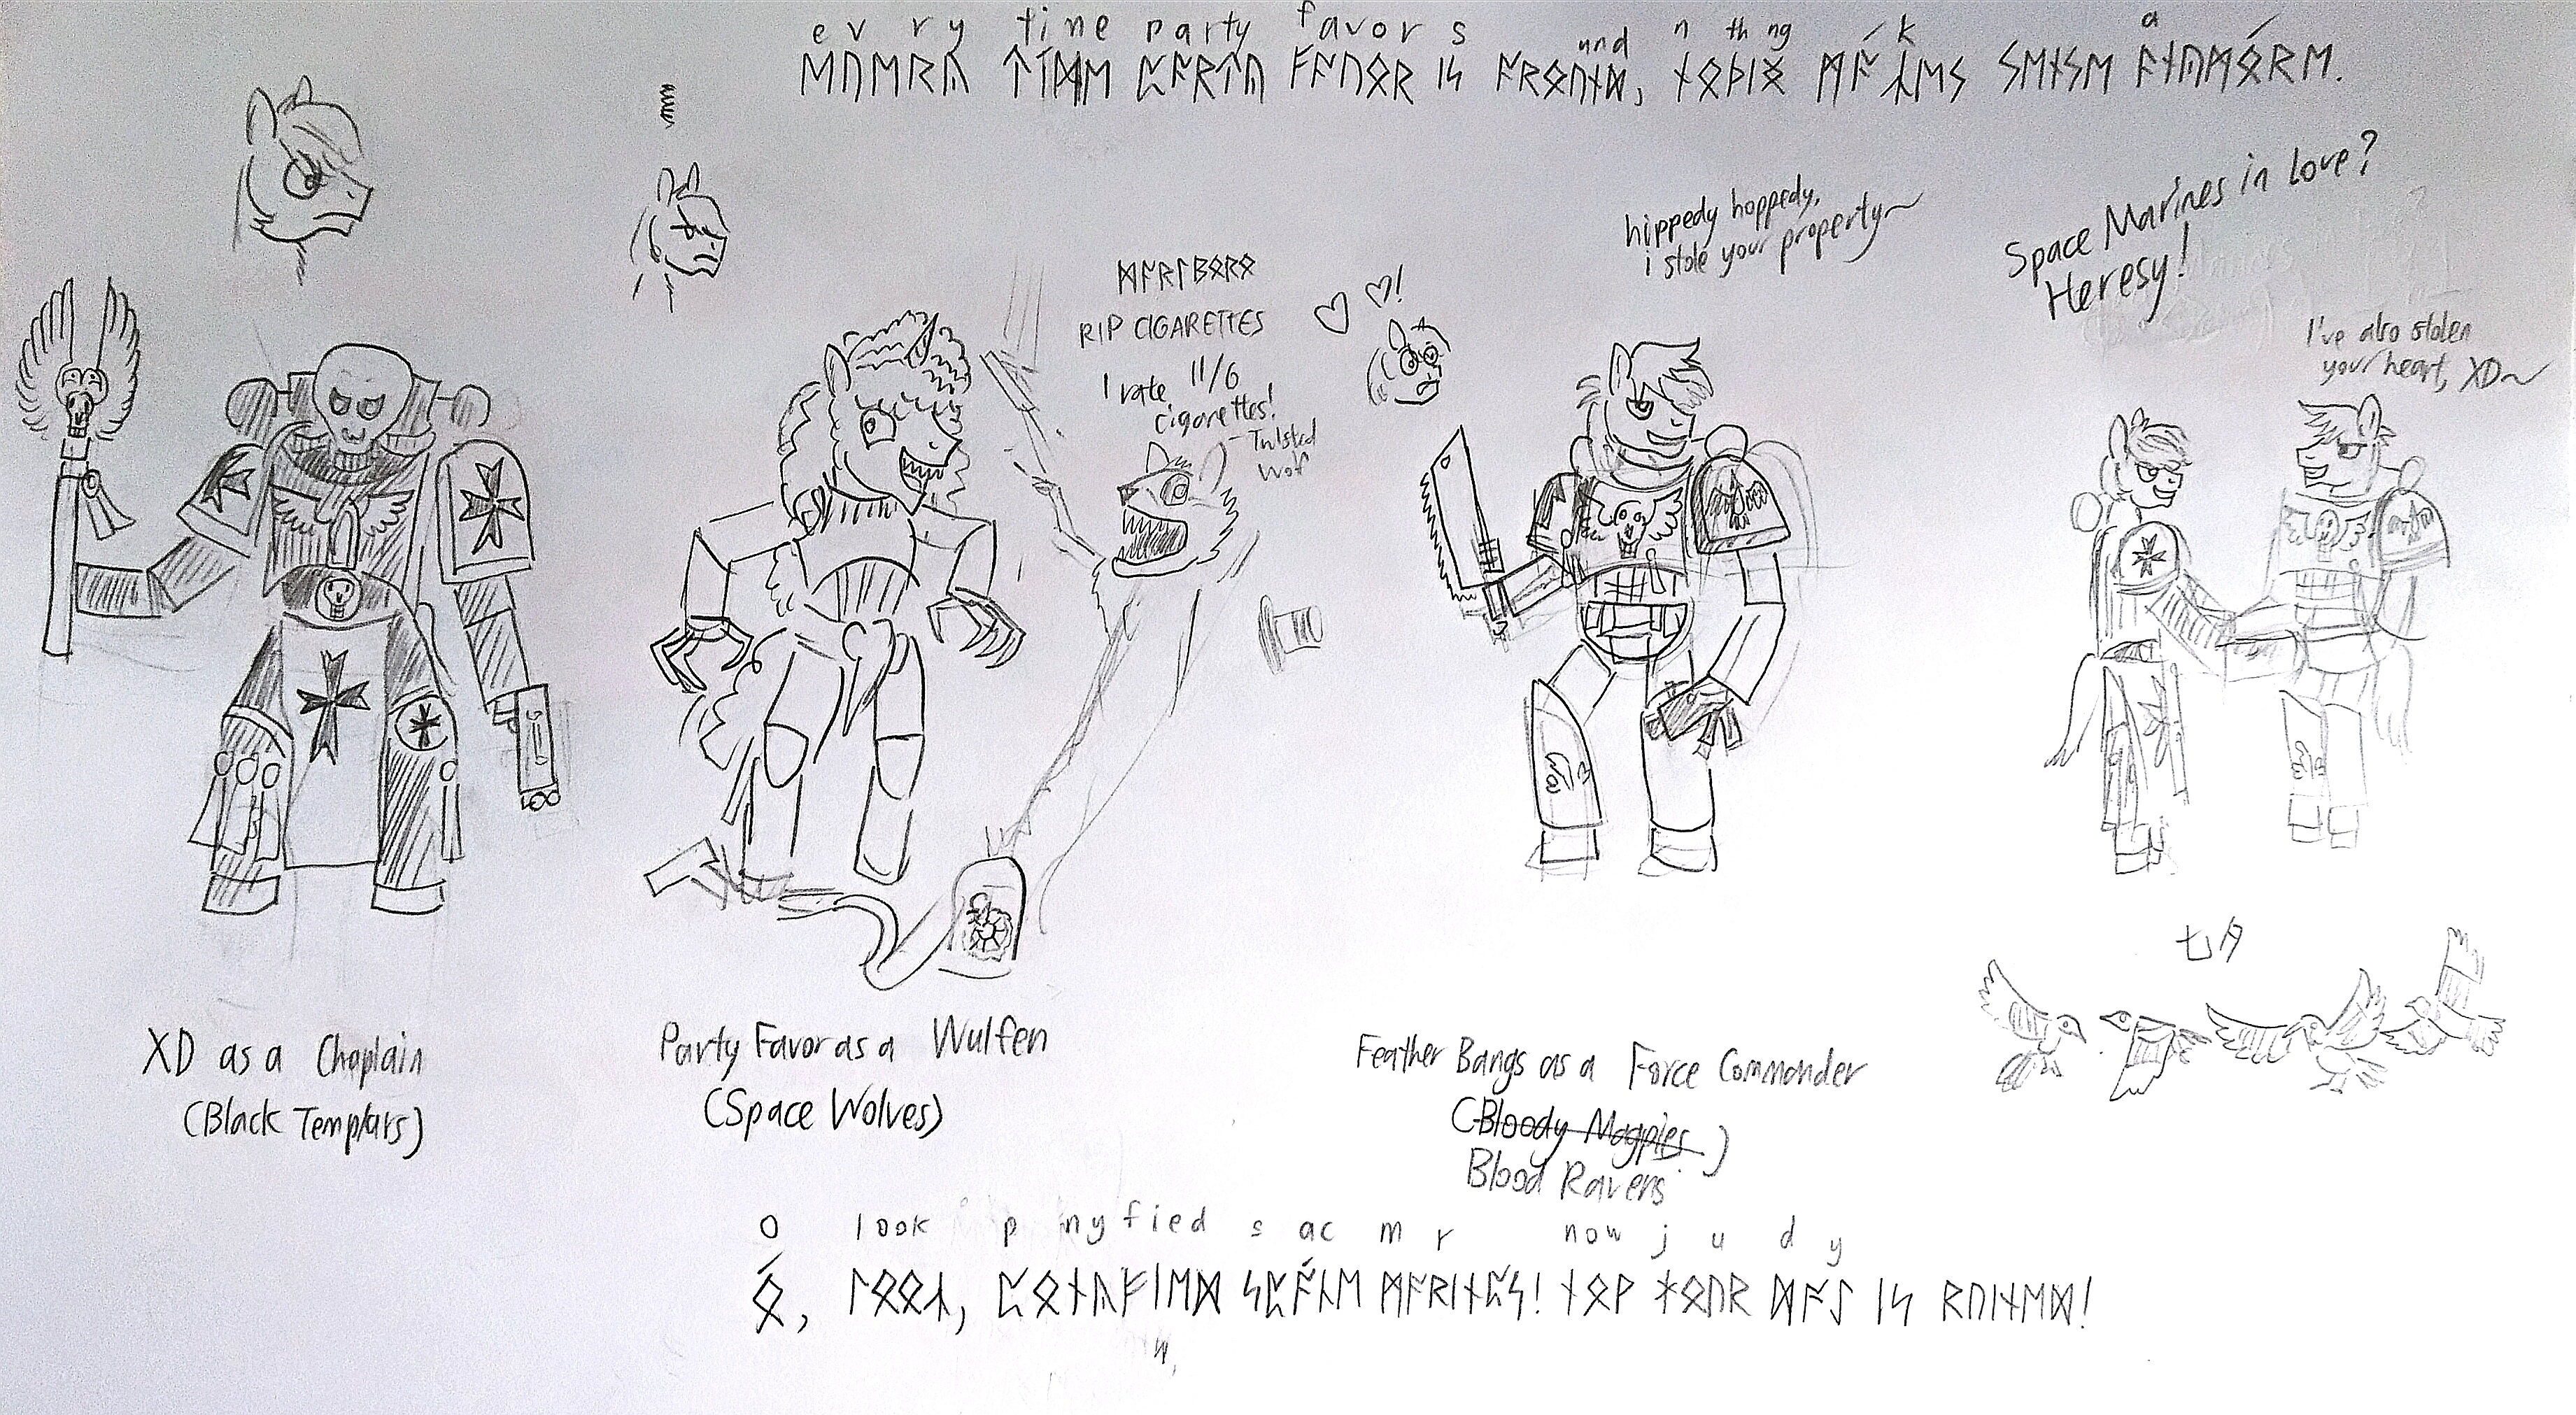 e v r y tine party favor s und n th ng k a
ᛖᚢᛖᚱᚤ ᛏᛁᛗᛖ ᛈᚨᚱᛏᚤ ᚠᚨᚢᛟᚱ ᛁᛋ ᚨᚱᛟᚢᚾᛞ, ᚾᛟᚦᛁᛝ ᛗᚨ́ᛣᛖᛋ ᛋᛖᚾᛋᛖ ᚨᚾᚤᛗᛟ́ᚱᛖ.
ᛗᚨᚱᛚᛒᛟᚱᛟ
RIP CIGARETTES
I rate 11/6
cigarettes!
- Twisted
Wolf
hippedy hoppedy,
i stole your property~
Space Marines in Love?
Heresy!
I've also stolen
your heart, XD~
七月
XD as a Chaplain
(Black Templars)
Party Favor as a Wulfen
(Space Wolves)
Feather Bangs as a Force Commander
(Bloody Magpies)
Blood Ravens
o look p nyfied s ac m r now j u d y
ᛟ́, ᛚᛟᛟᛣ, ᛈᛟᚾᚤᚠᛁᛖᛞ ᛋᛈᚨ́ᚳᛖ ᛗᚨᚱᛁᚾᛖᛋ! ᚾᛟᚹ ᛡᛟᚢᚱ ᛞᚨᛇ ᛁᛋ ᚱᚢᛁᚾᛖᛞ!